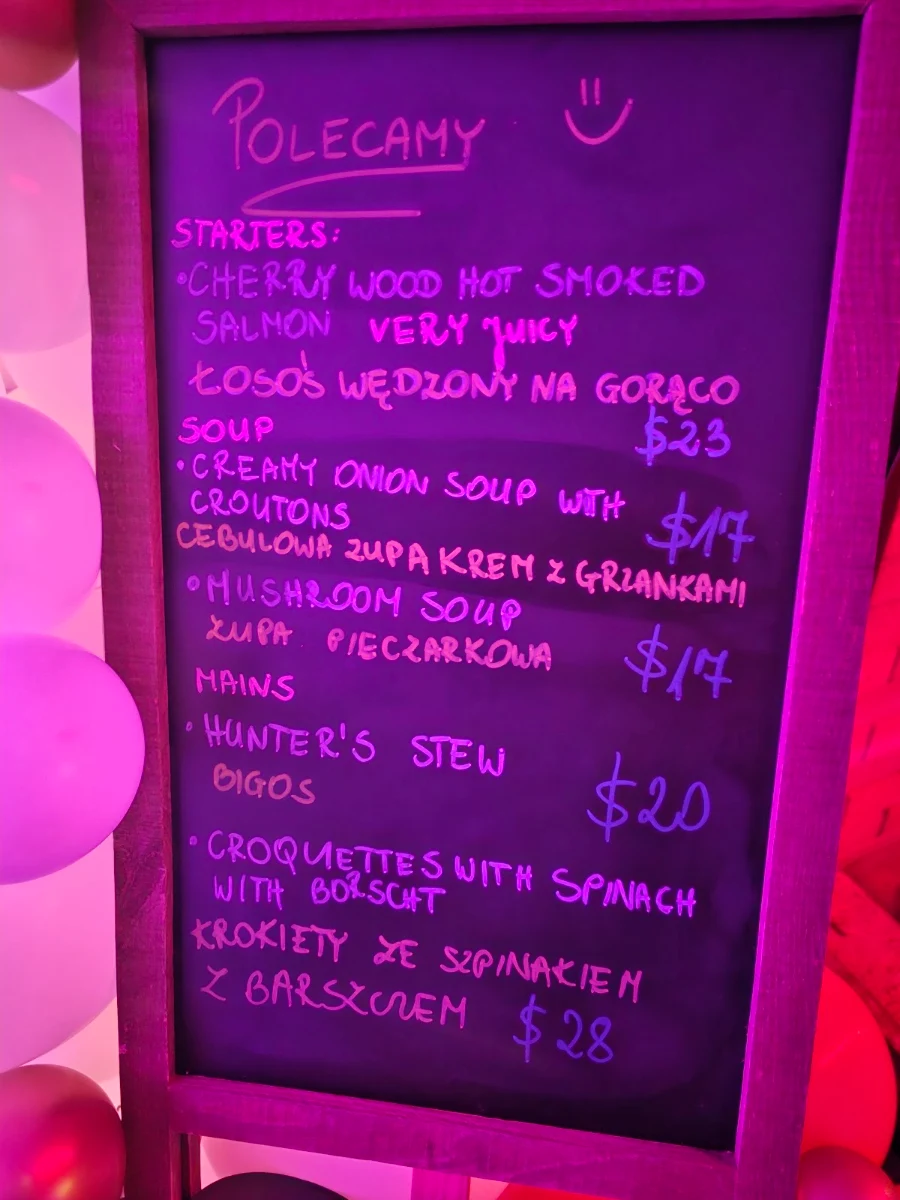 POLECAMY
STARTERS:
•CHERRY WOOD HOT SMOKED
SALMON VERY JUICY
ŁOSOŚ WĘDZONY NA GORĄCO
SOUP $23
•CREAMY ONION SOUP WITH
CROUTONS $17
CEBULOWA ZUPA KREM Z GRZANKAMI
•MUSHROOM SOUP
ZUPA PIECZARKOWA $17
MAINS
•HUNTER'S STEW
BIGOS $20
•CROQUETTES WITH SPINACH
WITH BORSCHT
KROKIETY ZE SZPINAKIEM
Z BARSZCZEM $28